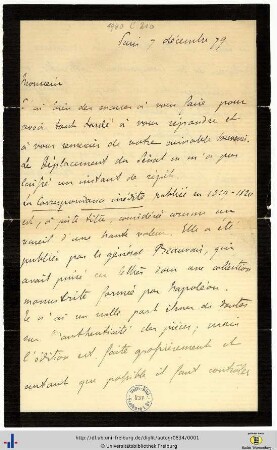 Paris 7 décembre 79
Monsieur
J'ai bien des excuses à vous faire pour
avoir tant tardé à vous répondre et
à vous remercier de votre aimable souvenir.
Le déplacement du Sénat ne m'a pas
laissé un instant de répit.
La Correspondance inédite publiée en 1819-1820
est, à juste titre, considérée comme un
recueil d'une haute valeur. Elle a été
publiée par le général Beauvais, qui
avait puisé ces lettres dans une collection
manuscrite formée par Napoléon.
Je n'ai vu nulle part élever de doutes
sur l'authenticité des pièces, mais
l'édition est faite grossièrement et
autant que possible il faut contrôler
http://dl.ub.uni-freiburg.de/diglit/autogr0634/0001
© Universitätsbibliothek Freiburg